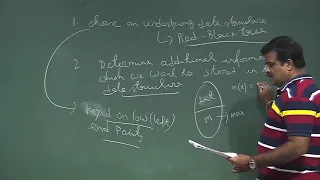 1. choose an underlying data structure
↳ Red-Black trees
2. Determine additional informa
which we want to stored in
data structure
keyed on low (left)
end Points
M → max
m(x) =